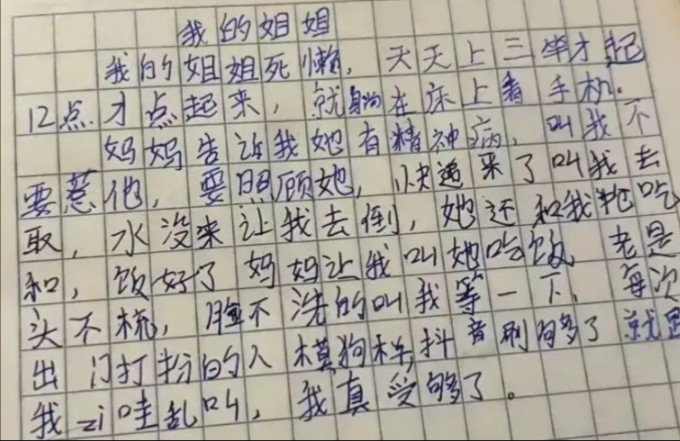 我的姐姐
我的姐姐死懒，天天上三竿才起
12点才点起来，就躺在床上看手机.
妈妈告诉我她有精神病，叫我不
要惹他，要照顾她，快递来了叫我去
取，水没来让我去倒，她还和我抢吃
和，饭好了妈妈让我叫她吃饭，老是
头不梳，脸不洗的叫我等一下，每次
出门打扮的人模狗样，抖音刷够多了就
我zi哇乱叫，我真受够了。